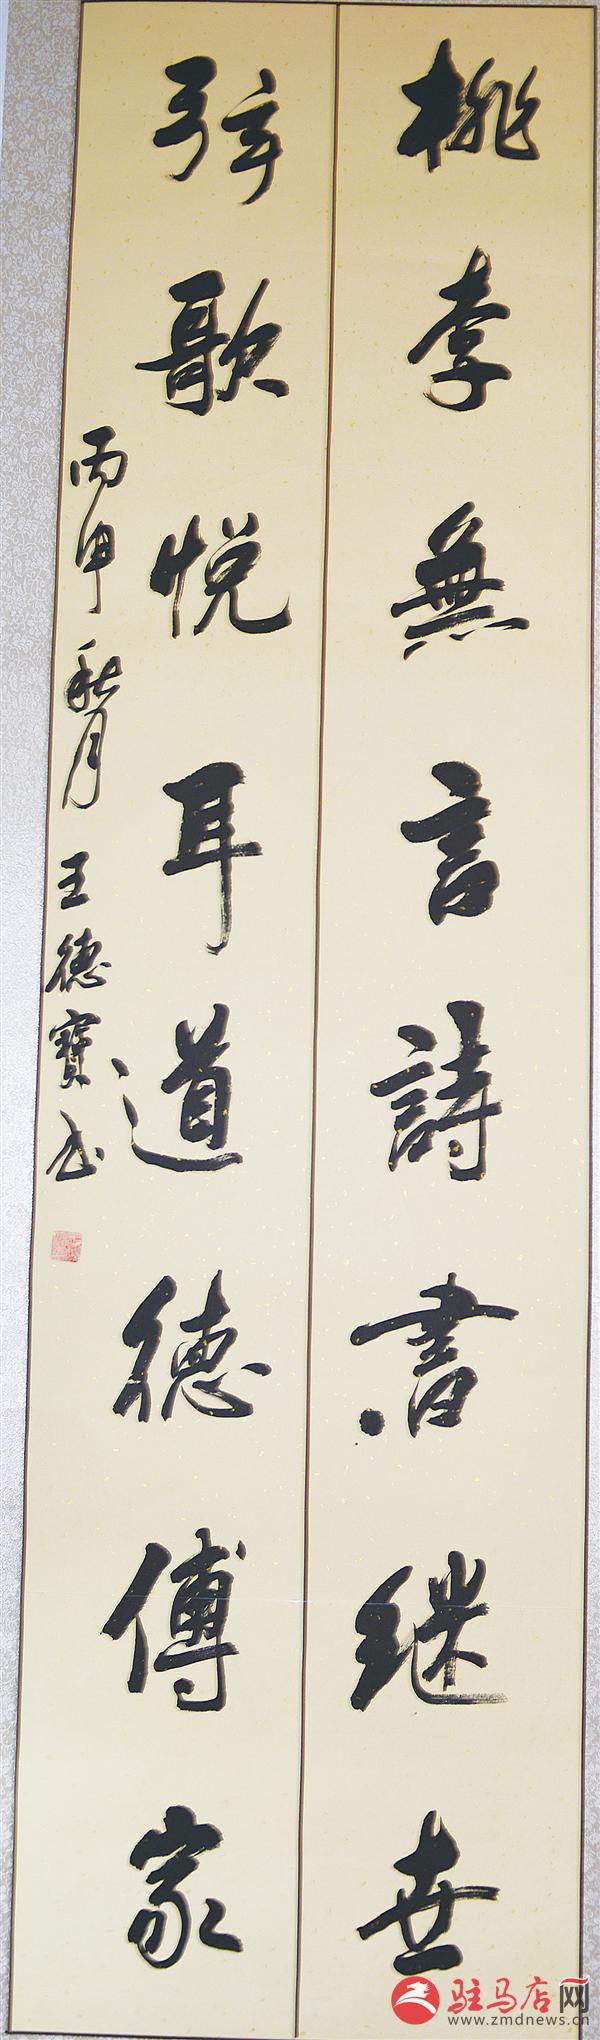 桃李無言詩書继世
弦歌悦耳道德傳家
丙申秋月王德寶书
驻马店网
www.zmdnews.cn